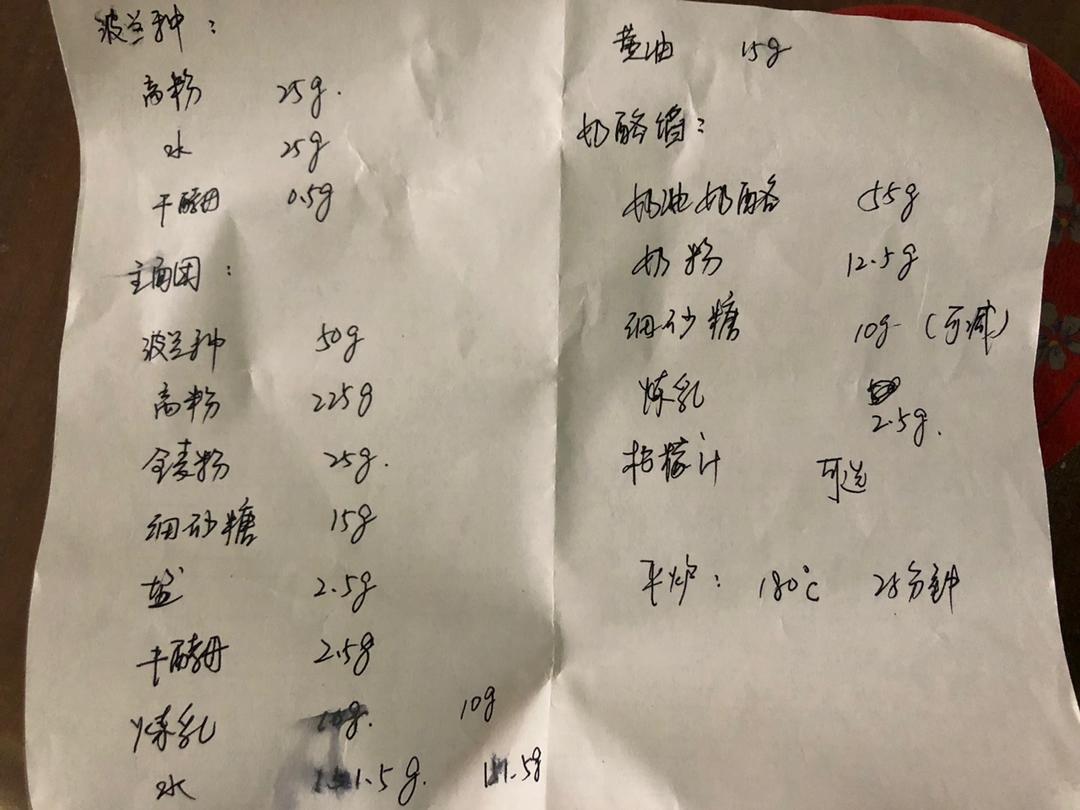 波兰种：
高粉 25g.
水 25g
干酵母 0.5g
主面团：
波兰种 50g
高粉 225g
全麦粉 25g.
细砂糖 15g
盐 2.5g
干酵母 2.5g
炼乳 10g. 10g
水
黄油 15g
奶酪馅：
奶油奶酪 55g
奶粉 12.5g
细砂糖 10g (可减)
炼乳 2.5g.
柠檬汁 可选
平炉： 180℃ 25分钟